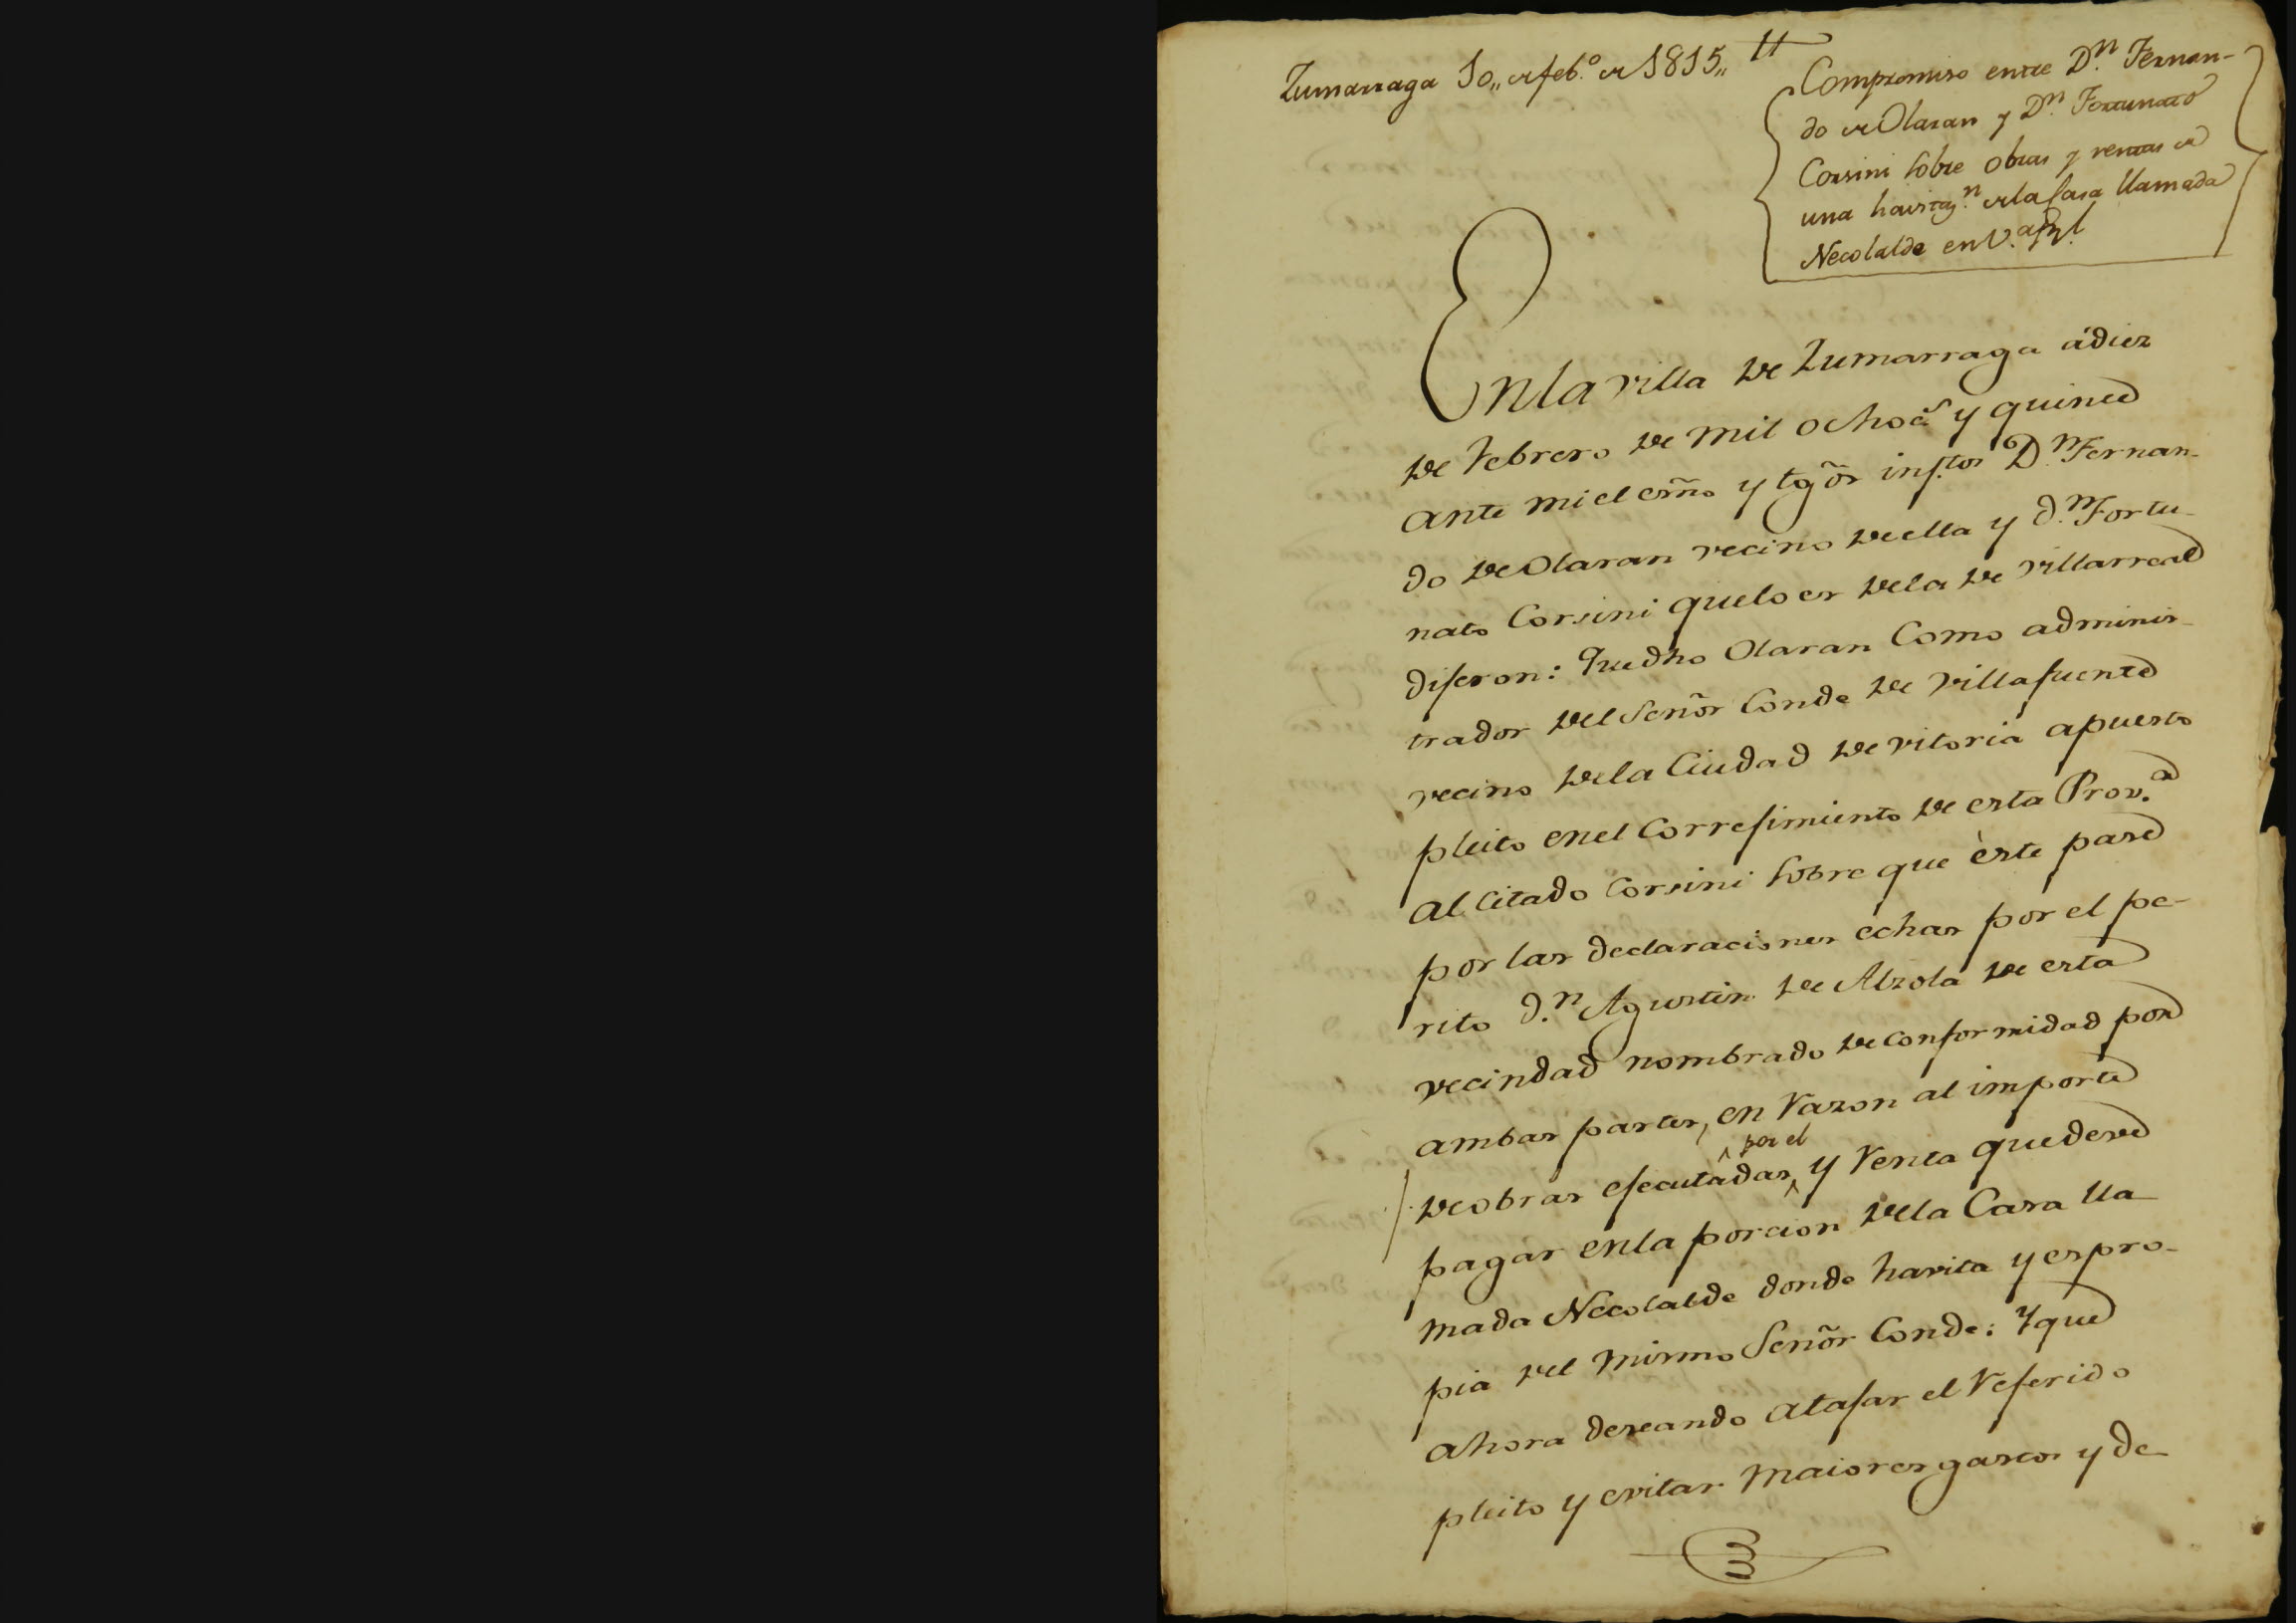 Zumarraga 10,, de feb.º de 1815,, tt
Compromiso entre D.n Fernan-
do de Olaran y D.n Fortunato
Corsini sobre obras y rentas de
una havitaz.n de la Casa llamada
Necolalde en V.a Rl.
En la villa de Zumarraga á diez
de Febrero de mil ochoc.s y quince
ante mi el esño y tgõs inf.tos D.n Fernan-
do de Olaran vecino de ella y d.n Fortu-
nato Corsini que lo es de la de Villarreal
dijeron: Que dho Olaran Como adminis-
trador del Señor Conde de Villafuente
vecino de la Ciudad de Vitoria a puesto
pleito en el Correjimiento de esta Prov.a
al citado Corsini sobre que èste pase
por las declaraciones echas por el pe-
rito d.n Agustin de Alzola de esta
vecindad nombrado de conformidad por
ambas partes, en razon al importe
por el
de obras ejecutadas, y renta que deve
pagar en la porcion de la Casa lla-
mada Necolalde donde havita y es pro-
pia del mismo Señor Conde: Y que
ahora deseando atajar el referido
pleito y evitar maiores gastos y de-